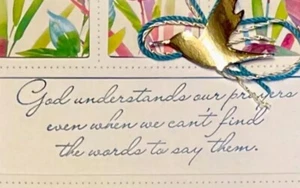 God understands our prayers
even when we can't find
the words to say them.